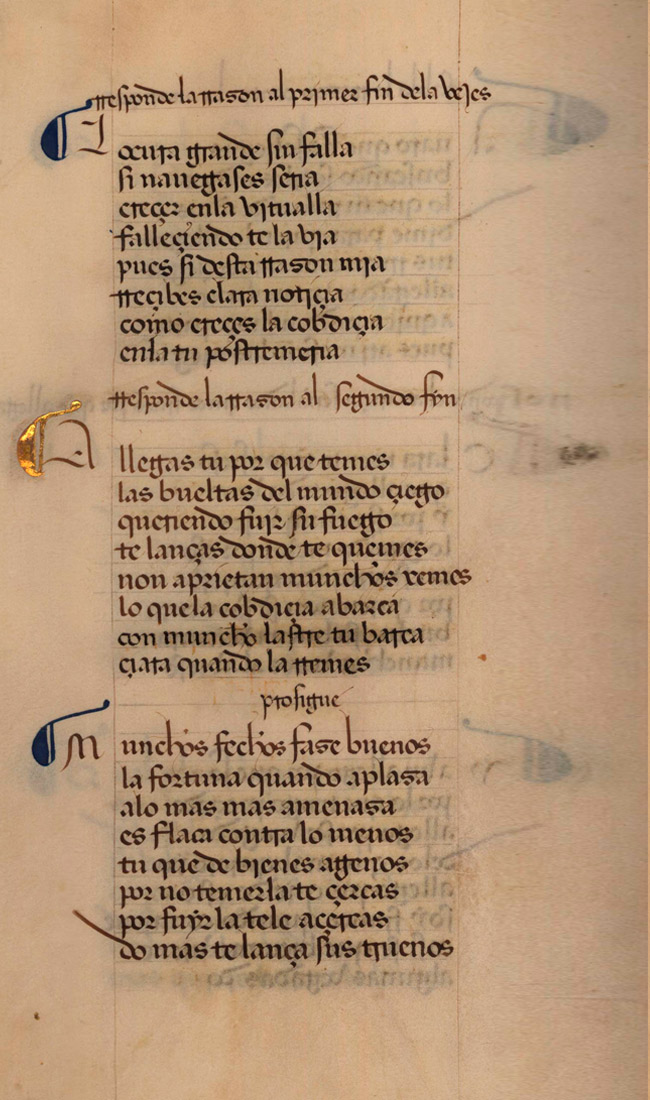 rresponde la rrason al primer fin dela vejes
Locura grande sin falla
si nauegases seria
creçer enla vitualla
falleçiendo te la via
pues si desta rrason mia
rreçibes clara notiçia
como creçes la cobdiçia
enla tu postremeria
rresponde la rrason al segundo fyn
Allegas tu por que temes
las bueltas del mundo çiego
queriendo fuir su fuego
te lanças donde te quemes
non aprietan munchos remes
lo que la cobdiçia abarca
con muncho lastre tu barca
çiara quando la rremes
prosigue
Munchos fechos fase buenos
la fortuna quando aplasa
alo mas mas amenasa
es flaca contra lo menos
tu que de bienes agenos
por no temerla te çercas
por fuyr la tele açercas
do mas te lança sus truenos